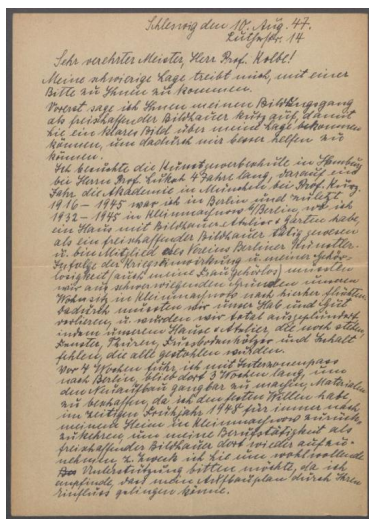 Schleswig den 10. Aug. 47.
Lutherstr. 14
Sehr verehrter Meister, Herr Prof. Kolbe!
Meine schwierige Lage treibt mich, mit einer
Bitte zu Ihnen zu kommen.
Vorerst sage ich Ihnen meinen Bildungsgang
als freischaffender Bildhauer kurz auf, damit
Sie ein klares Bild über meine Lage bekommen
können, um dadurch mir besser helfen zu
können.
Ich besuchte die Kunstgewerbeschule in Hamburg
bei Herrn Prof. Luksch 4 Jahre lang, darauf
Jahre die Akademie in München bei Prof.
1916 - 1945 war ich in Berlin und zuletzt
1932 - 1945 in Kleinmachnow b/Berlin, wo ich
ein Haus mit Bildhauer-Atelier u. Garten habe,
als ein freischaffender Bildhauer tätig gewesen
u. bin Mitglied des Vereins Berliner Künstler.
Infolge der Kriegseinwirkung u. meiner Gehör-
losigkeit (auch meine Frau gehörlos) mussten
wir aus schwerwiegenden Gründen unseren
Wohnsitz in Kleinmachnow nach hierher flüchten,
dadurch mussten wir unser Hab und Gut
verlieren, u. wurden wir total ausgeplündert
in dem unserem Hause u. Atelier, die noch stehen.
Fenster, Thüren, Fussbodenhölzer und Inhalt
fehlen, die alle gestohlen wurden.
Vor 4 Wochen fuhr ich mit Interzonenpass
nach Berlin, blieb dort 3 Wochen lang, um
den Neuaufbau gangbar zu machen, Materialien
zu beschaffen, da ich den festen Willen habe,
im zeitigen Frühjahr 1948 für immer nach
meinem Heim in Kleinmachnow zurück-
zukehren, um meine Berufstätigkeit als
freischaffender Bildhauer dort wieder aufzu-
nehmen. Zu Zweck ich Sie um wohlwollende
Unterstützung bitten möchte, da ich
empfinde, dass mein Aufbauplan durch Ihren
Einfluss gelingen könne.